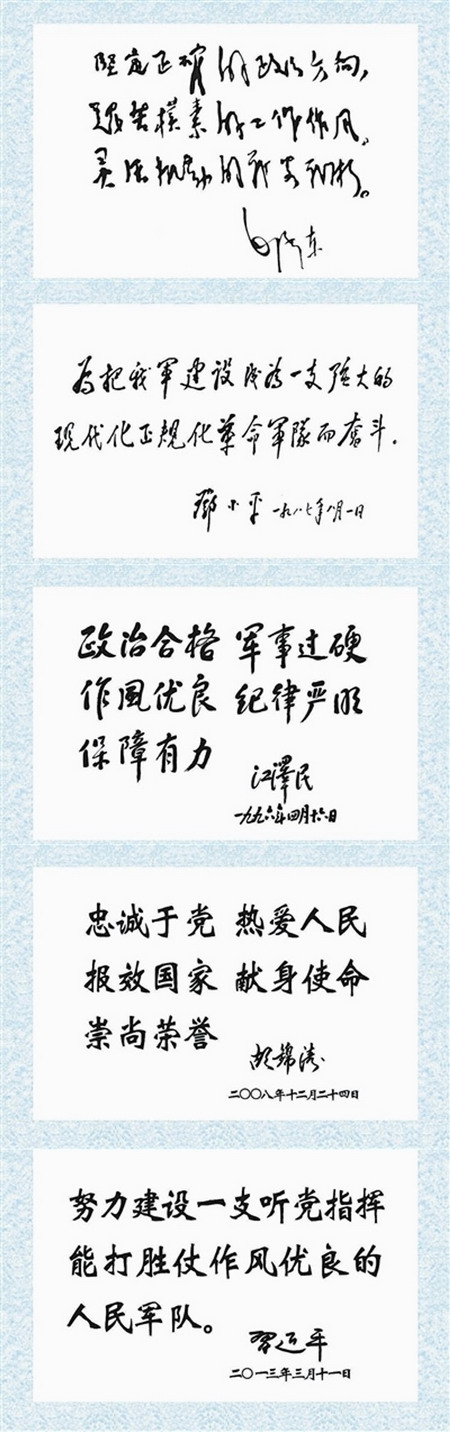 坚定正确的政治方向，
艰苦朴素的工作作风，
灵活机动的战略战术。
毛泽东
为把我军建设成为一支强大的
现代化正规化革命军队而奋斗.
邓小平 一九八七年八月一日
政治合格 军事过硬
作风优良 纪律严明
保障有力
江泽民
一九九六年四月十六日
忠诚于党 热爱人民
报效国家 献身使命
崇尚荣誉
胡锦涛
二〇〇八年十二月二十四日
努力建设一支听党指挥
能打胜仗作风优良的
人民军队。
习近平
二〇一三年三月十一日